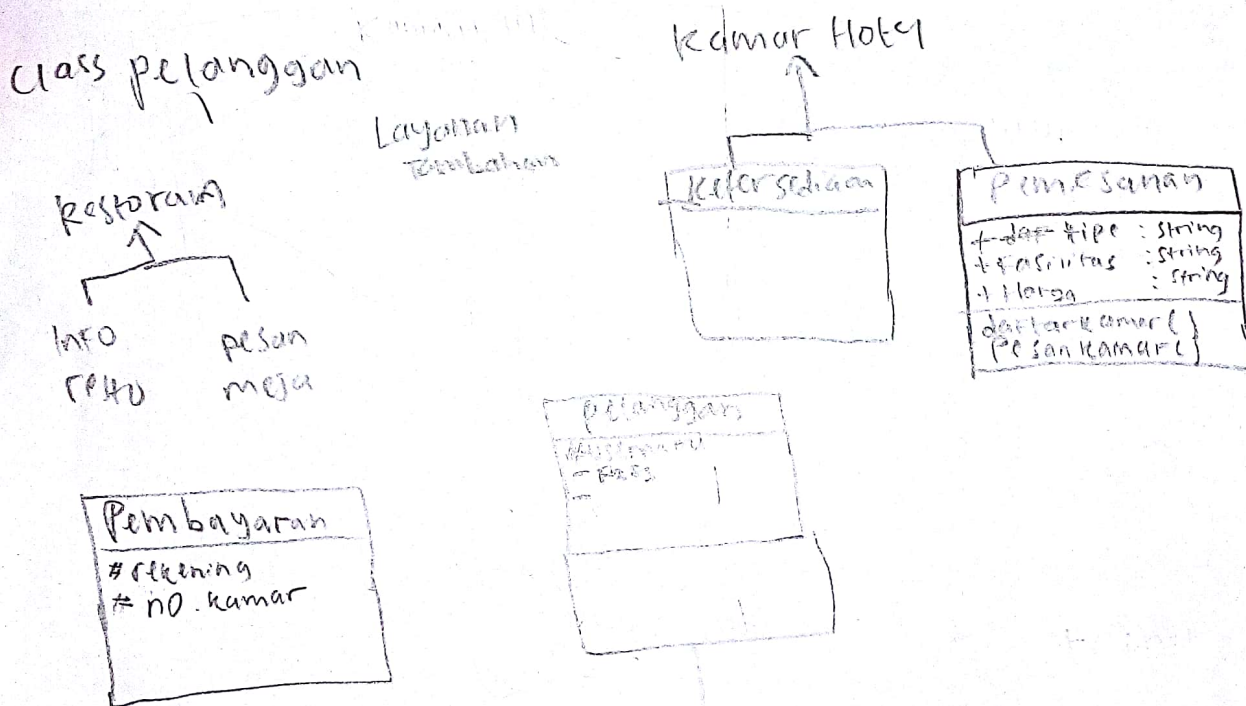 class pelanggan
Kamar Hotel
Layanan
Tambahan
Restoraun
Info
resto
pesan
meja
Ketersediaan
Pemesanan
+ tipe : String
+ Fasilitas : String
+ Harga : String
daftarkamar()
Pesankamar()
pelanggan
-
-
Pembayaran
# rekening
# no.kamar